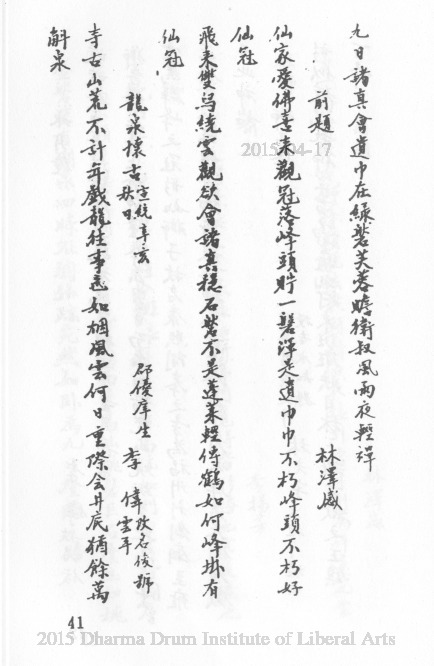 九日諸真會道巾在綠磐芙蓉瞻衛叔風雨夜輕彈
前題
林澤威
仙家愛佛喜來觀冠落峰頭貯一磐渾是道巾巾不朽峰頭不朽好
仙冠
飛來雙舄繞雲觀欲會諸真穩石磐不是蓬萊輕倚鶴如何峰掛有
仙冠
龍泉懷古宣統辛亥秋日
邵優庠生 李 偉改名俊號雲年
寺古山荒不計年戲龍往事遠如烟風雲何日重際會井底猶餘萬
斛泉
41
2015-04-17
2015 Dharma Drum Institute of Liberal Arts